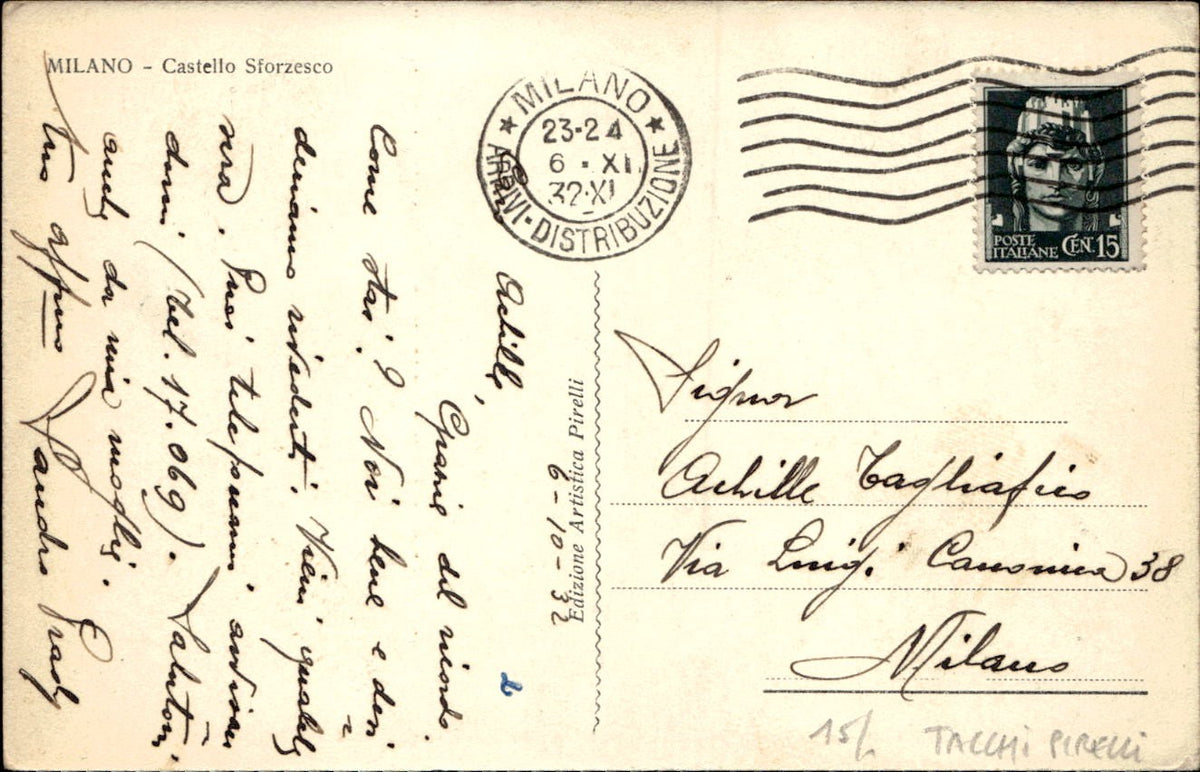 MILANO – Castello Sforzesco
6 - 10 - 32
Achille,
Grazie del ricordo.
Come stai? Noi bene e desi=
deriamo vederti. Vieni qualche
sera. Puoi telefonarci
(tel. 17.069). Saluti
anche da mia moglie.
tuo affmo Sandro
Edizione Artistica Pirelli
MILANO
23-24
6 · XI
32·XI
ARRIVI·DISTRIBUZIONE
POSTE
ITALIANE CEN. 15
Signor
Achille Tagliafico
Via Luigi Canonica 38
Milano
15/
TACCHI PIRELLI